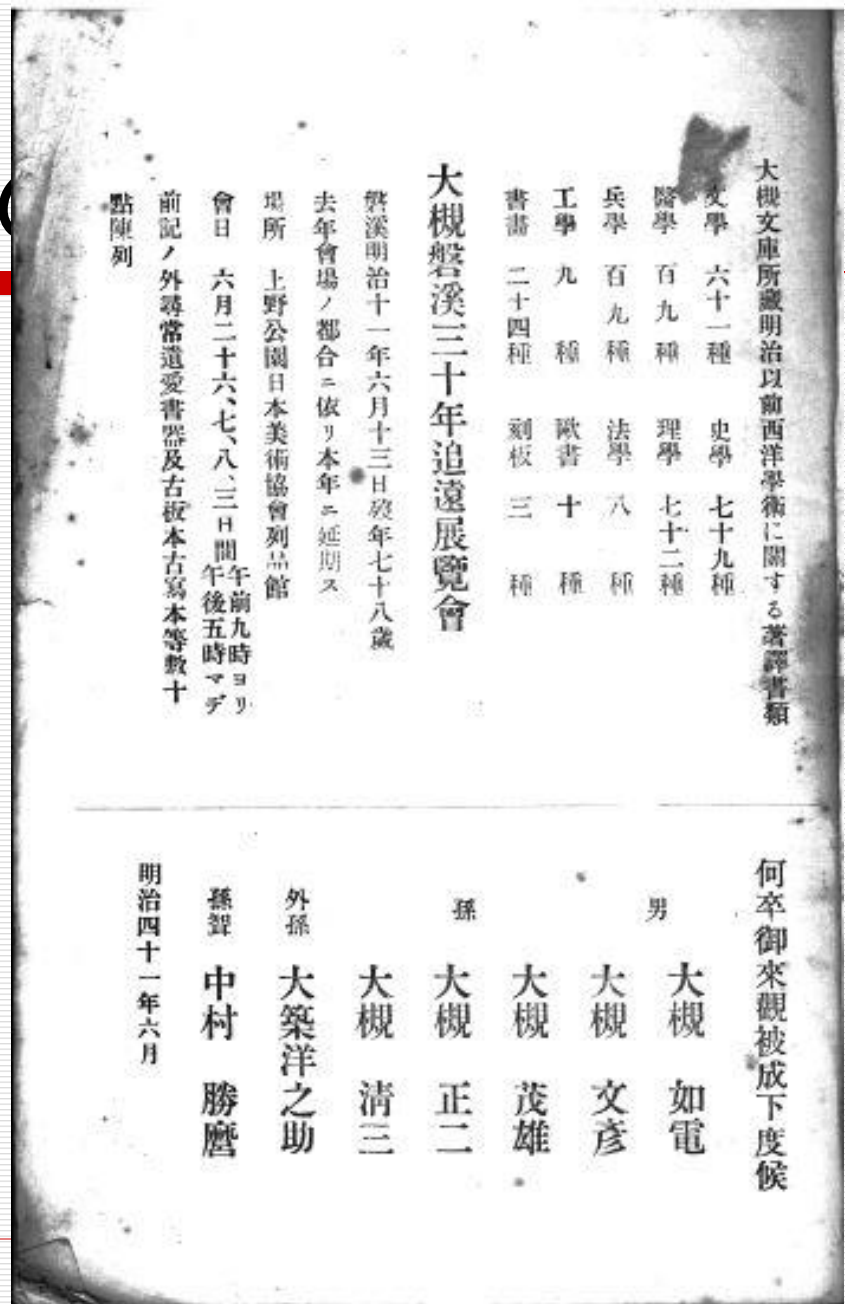 大槻文庫所藏明治以前西洋學術に關する著譯書類
文學 六十一種 史學 七十九種
醫學 百九種 理學 七十二種
兵學 百九種 法學 八種
工學 九種 歐書 十種
書畵 二十四種 刻板 三種
大槻磐溪三十年追遠展覽會
磐溪明治十一年六月十三日歿年七十八歲
去年會場ノ都合ニ依リ本年ニ延期ス
場所 上野公園日本美術協會列品館
會日 六月二十六、七、八、三日間午前九時ヨリ午後五時マデ
前記ノ外尋常遺愛書器及古板本古寫本等數十
點陳列
何卒御來觀被成下度候
男 大槻 如電
大槻 文彥
孫 大槻 茂雄
大槻 正二
大槻 淸三
外孫 大築洋之助
孫聟 中村 勝麿
明治四十一年六月